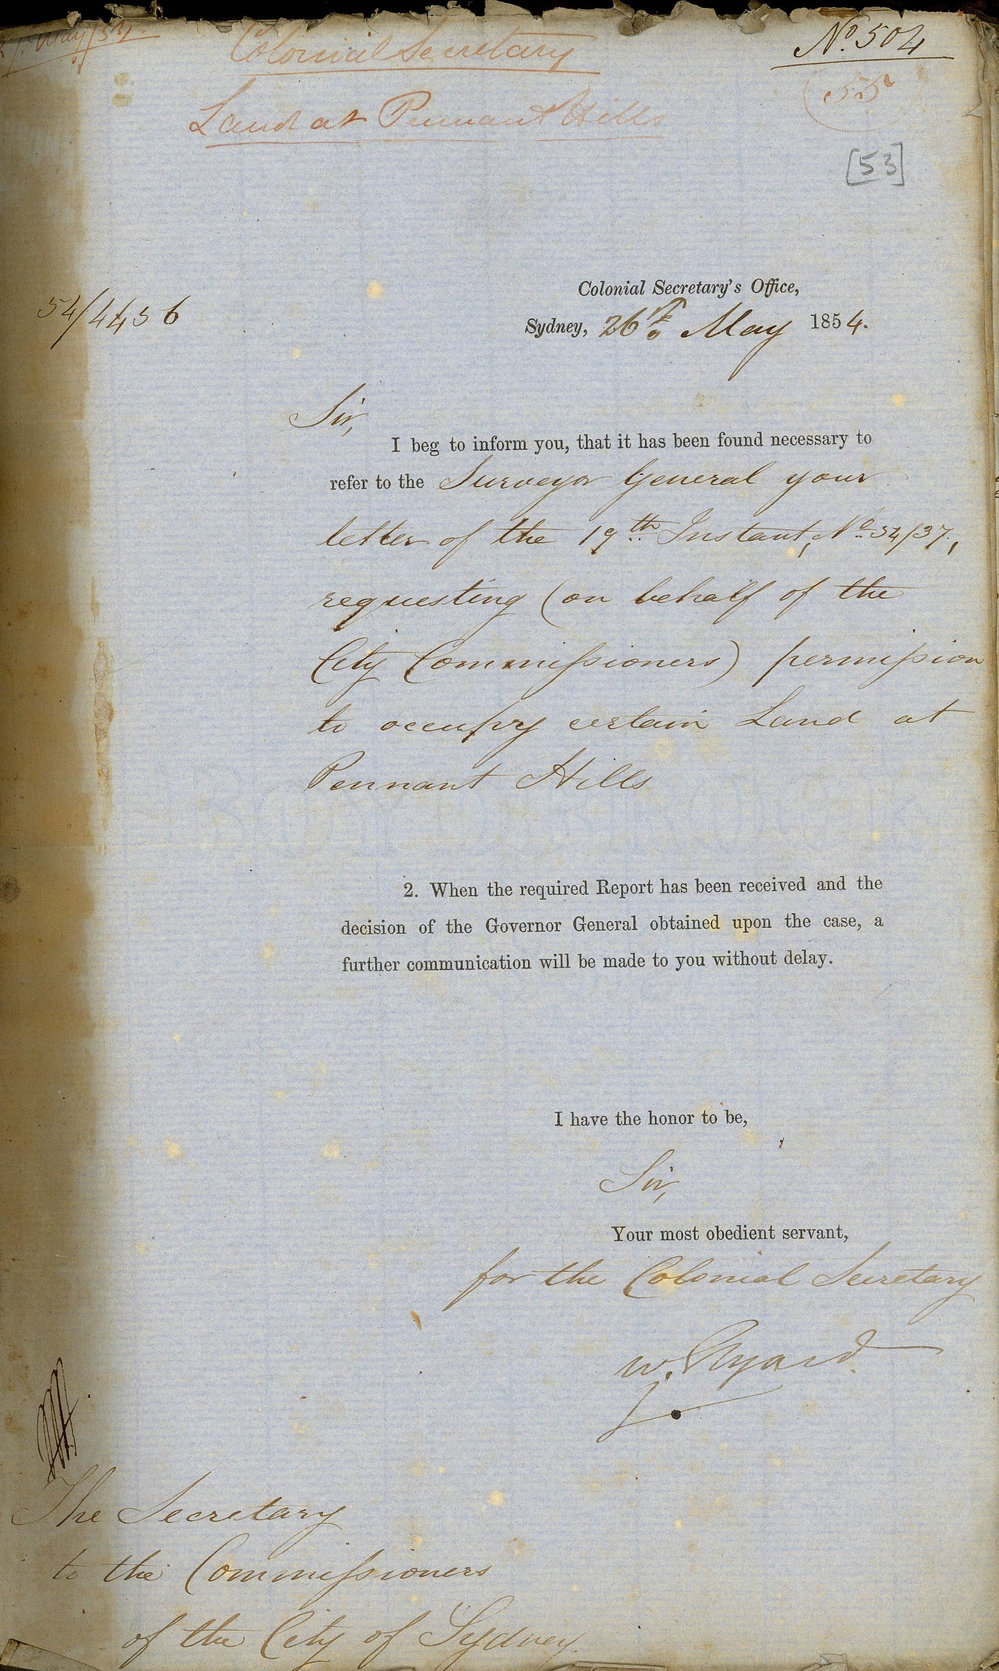 May/54.
Colonial Secretary
No. 504
55
Land at Pennant Hills
[53]
Colonial Secretary's Office,
54/4436
Sydney, 26th May 1854.
Sir,
I beg to inform you, that it has been found necessary to
refer to the Surveyor General your
letter of the 19th Instant, No 54/37,
requesting (on behalf of the
City Commissioners) permission
to occupy certain Land at
Pennant Hills
2. When the required Report has been received and the
decision of the Governor General obtained upon the case, a
further communication will be made to you without delay.
I have the honor to be,
Sir,
Your most obedient servant,
for the Colonial Secretary
W. Elyard
The Secretary
to the Commissioners
of the City of Sydney